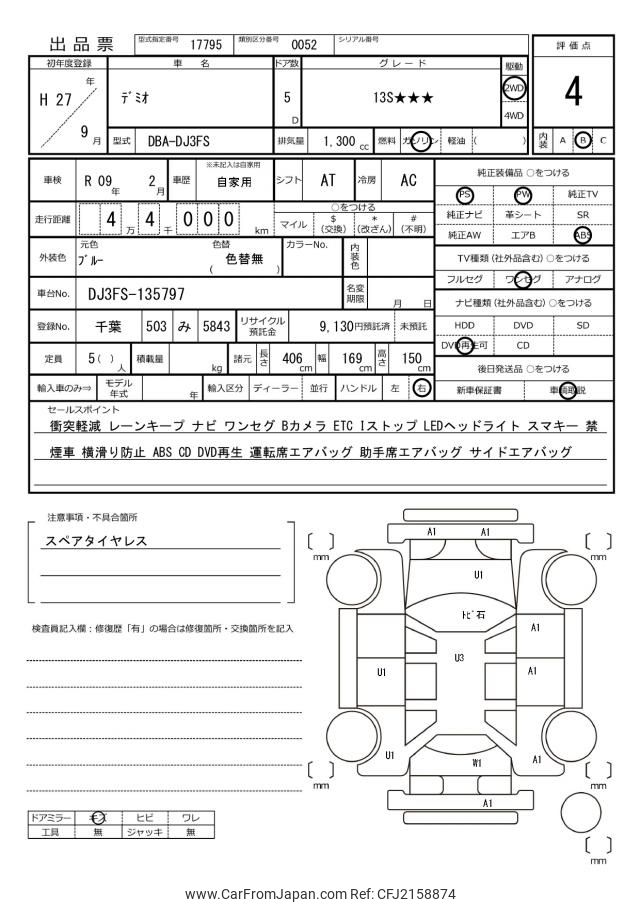 出品票 型式指定番号 17795 類別区分番号 0052 シリアル番号
初年度登録 車名 ドア数 グレード 駆動 評価点
H 27 年 9 月 デミオ 5 D 13S★★★ 2WD 4WD 4
型式 DBA-DJ3FS 排気量 1,300 cc 燃料 ガソリン 軽油 ( ) 内装 A B C
車検 R 09 年 2 月 車歴 ※未記入は自家用 自家用 シフト AT 冷房 AC
走行距離 4 万 4 千 0 0 0 km
○をつける
マイル $(交換) *(改ざん) #(不明)
外装色 元色 ブルー 色替 ( 色替無 ) カラーNo. 内装色
車台No. DJ3FS-135797 名変期限 月 日
登録No. 千葉 503 み 5843 リサイクル預託金 9,130円預託済 未預託
定員 5( ) 人 積載量 kg 諸元 長さ 406 cm 幅 169 cm 高さ 150 cm
輸入車のみ⇒ モデル年式 年 輸入区分 ディーラー 並行 ハンドル 左 右
純正装備品 ○をつける
PS PW 純正TV
純正ナビ 革シート SR
純正AW エアB ABS
TV種類 (社外品含む) ○をつける
フルセグ ワンセグ アナログ
ナビ種類 (社外品含む) ○をつける
HDD DVD SD
DVD再生可 CD
後日発送品 ○をつける
新車保証書 車輌取説
セールスポイント
衝突軽減 レーンキープ ナビ ワンセグ Bカメラ ETC Iストップ LEDヘッドライト スマキー 禁
煙車 横滑り防止 ABS CD DVD再生 運転席エアバッグ 助手席エアバッグ サイドエアバッグ
注意事項・不具合箇所
スペアタイヤレス
検査員記入欄：修復歴「有」の場合は修復箇所・交換箇所を記入
ドアミラー キズ ヒビ ワレ
工具 無 ジャッキ 無
A1 A1
mm mm
U1
トビ石
A1
U3
U1 A1
U1 W1 A1
mm mm
A1
mm
www.CarFromJapan.com Ref: CFJ2158874